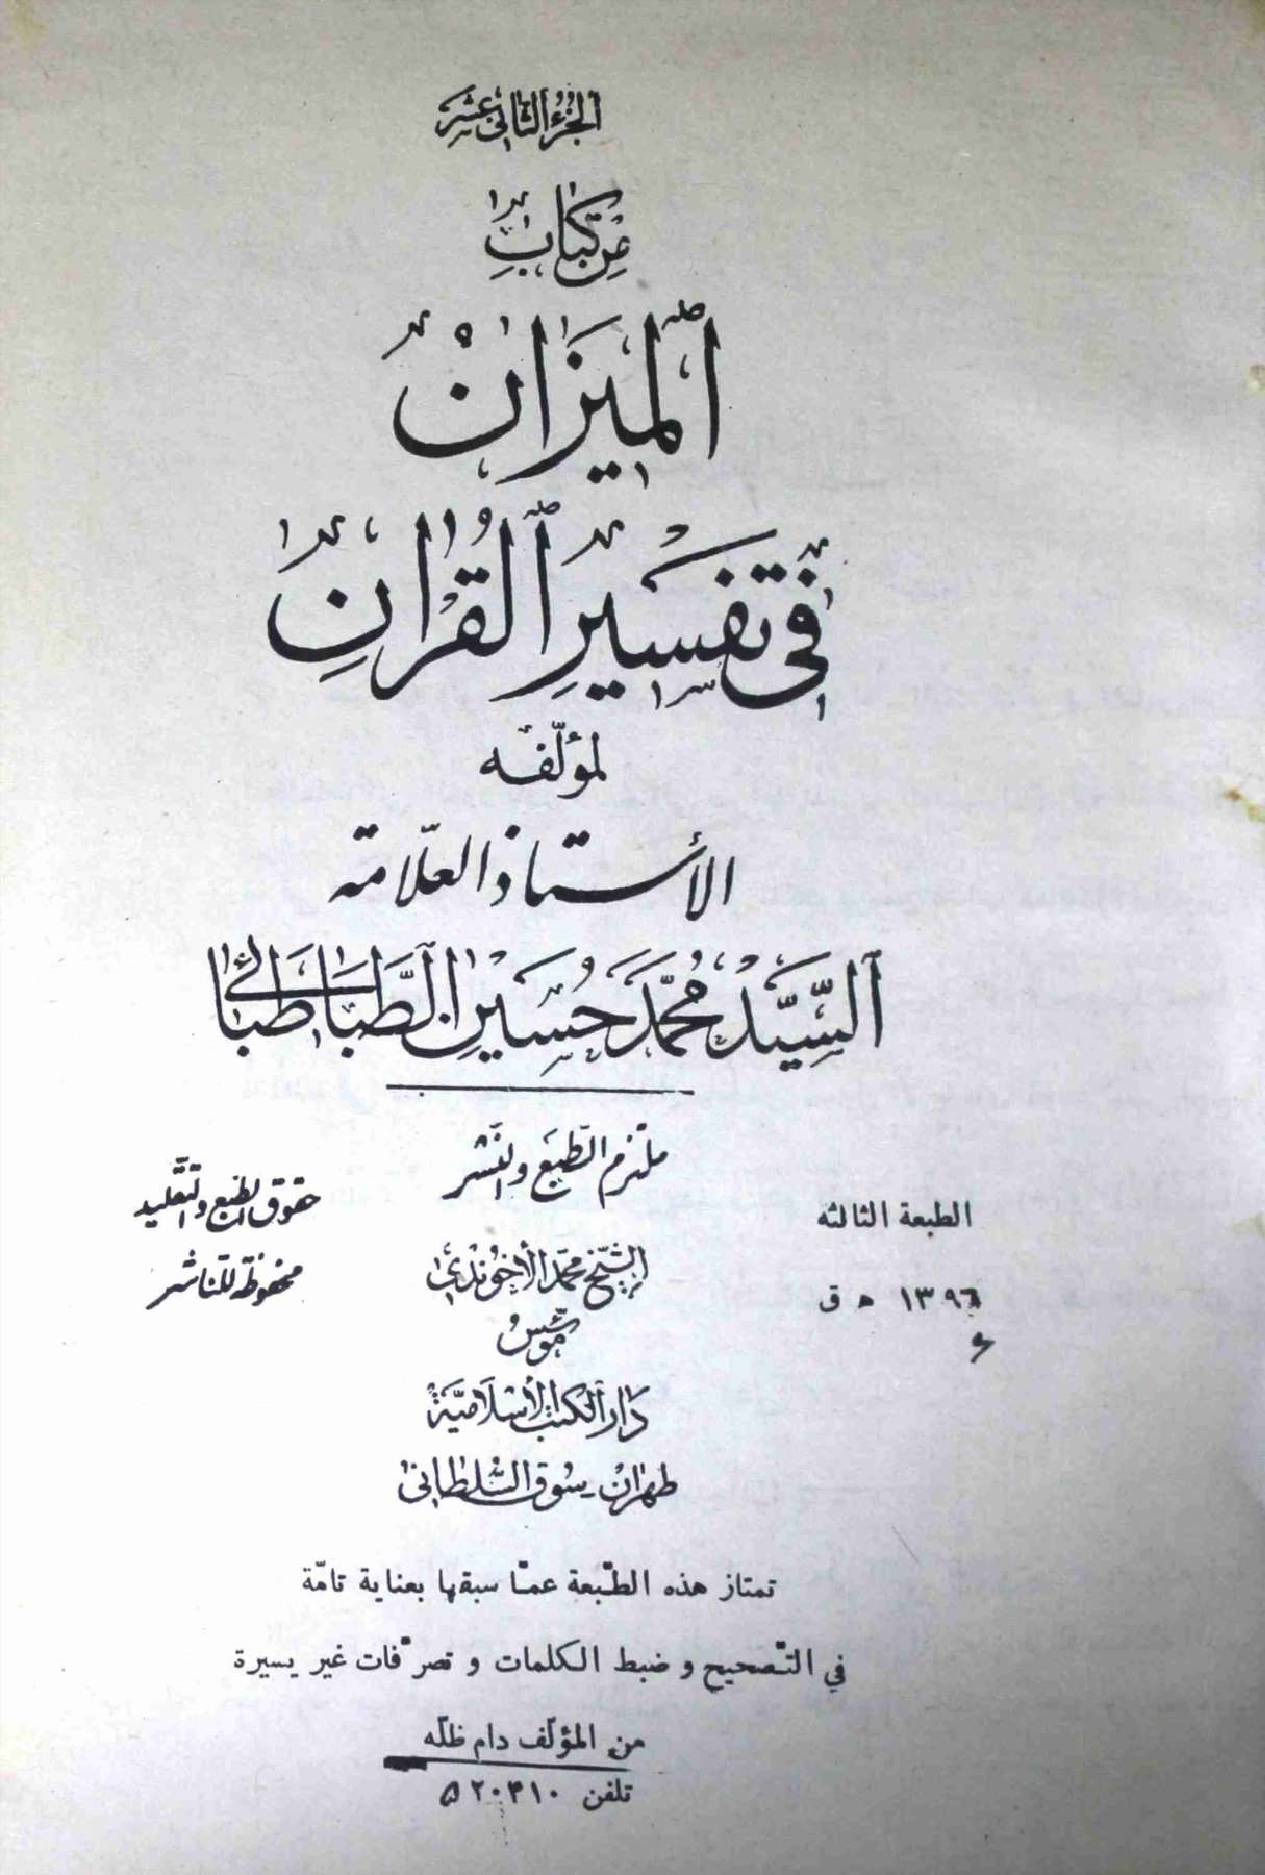 الجزء الثاني عشر
من كتاب
الميزان
في تفسير القرآن
لمؤلّفه
الأستاذ العلّامة
السيّد محمّد حسين الطباطبائي
ملتزم الطبع والنشر
الشيخ محمد الآخوندي
مؤسّس
دار الكتب الإسلاميّة
طهران - سوق السلطاني
حقوق الطبع والتقليد
محفوظة للناشر
الطبعة الثالثه
١٣٩٦ ه ق
تمتاز هذه الطّبعة عمّا سبقها بعناية تامّة
في التّصحيح و ضبط الكلمات و تصرّفات غير يسيرة
من المؤلّف دام ظلّه
تلفن ۵۲۰۴۱۰